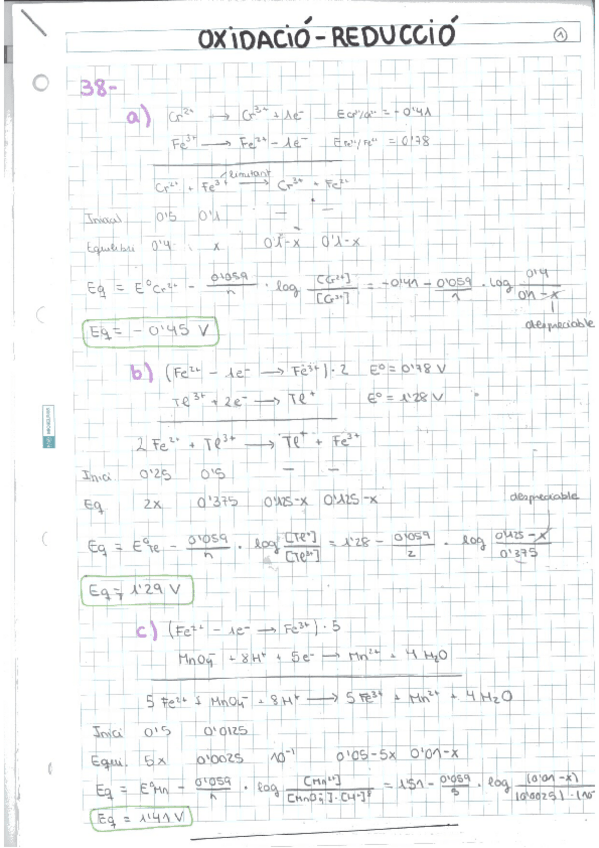 OXIDACIÓ-REDUCCIÓ
1
38-
a) Cr²⁺ → Cr³⁺ + 1e⁻ E Cr³⁺/Cr²⁺ = -0'41
Fe³⁺ → Fe²⁺ - 1e⁻ E Fe³⁺/Fe²⁺ = 0'78
limitant
Cr²⁺ + Fe³⁺ → Cr³⁺ + Fe²⁺
Inicial 0'5 0'1 - -
Equilibri 0'4 x 0'1-x 0'1-x
Eq = E⁰Cr²⁺ - 0'059/n · log [Cr²⁺]/[Cr³⁺] = -0'41 - 0'059/1 · log 0'4/0'1-x
despreciable
Eq = -0'45 V
b) (Fe²⁺ - 1e⁻ → Fe³⁺)·2 E⁰ = 0'78 V
Tl³⁺ + 2e⁻ → Tl⁺ E⁰ = 1'28 V
2 Fe²⁺ + Tl³⁺ → Tl⁺ + Fe³⁺
Inici 0'25 0'5 - -
Eq 2x 0'375 0'125-x 0'125-x
despreciable
Eq = E⁰Te - 0'059/n · log [Tl⁺]/[Tl³⁺] = 1'28 - 0'059/2 · log 0'125-x/0'375
Eq = 1'29 V
c) (Fe²⁺ - 1e⁻ → Fe³⁺)·5
MnO₄⁻ + 8H⁺ + 5e⁻ → Mn²⁺ + 4H₂O
5 Fe²⁺ + MnO₄⁻ + 8H⁺ → 5 Fe³⁺ + Mn²⁺ + 4H₂O
Inici 0'5 0'0125
Equi. 5x 0'0025 10⁻¹ 0'05-5x 0'01-x
Eq = E⁰Mn - 0'059/n · log [Mn²⁺]/[MnO₄⁻]·[H⁺]⁸ = 1'51 - 0'059/5 · log (0'01-x)/(0'0025)·(10⁻
Eq = 1'41 V